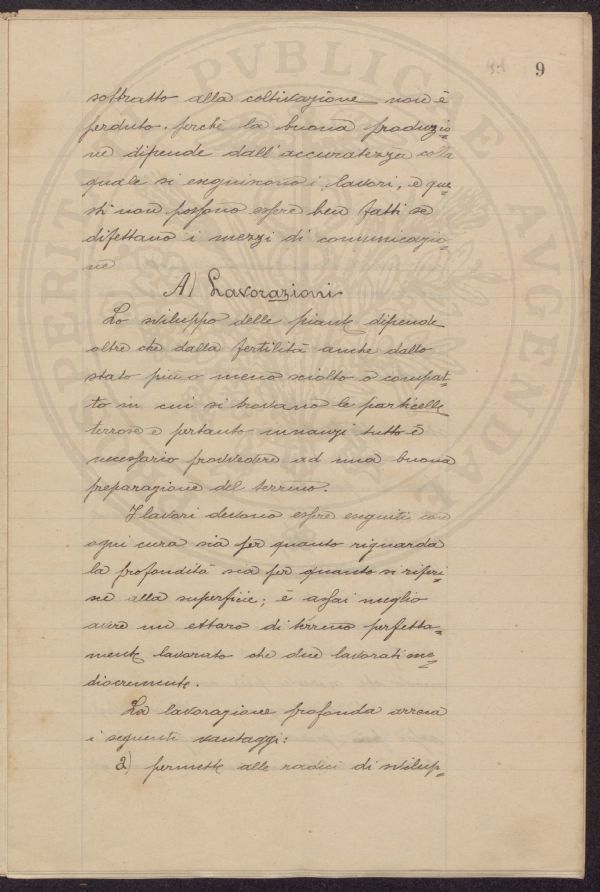 9
sottratto alla coltivazione non è
perduto, perchè la buona produzio=
ne dipende dall'accuratezza colla
quale si eseguiscono i lavori, e que=
sti non possono essere ben fatti se
difettano i mezzi di comunicazio=
ne
A) Lavorazioni
Lo sviluppo delle piante dipende
oltre che dalla fertilità anche dallo
stato più o meno sciolto o compat=
to in cui si trovano le particelle
terrose e pertanto innanzi tutto è
necessario provvedere ad una buona
preparazione del terreno.
I lavori devono essere eseguiti con
ogni cura sia per quanto riguarda
la profondità sia per quanto si riferi=
sce alla superficie; è assai meglio
avere un ettaro di terreno perfetta=
mente lavorato che due lavorati me=
diocremente.
La lavorazione profonda arreca
i seguenti vantaggi:
a) permette alle radici di svilup=
PERITA PVBLICAE AVGENDAE